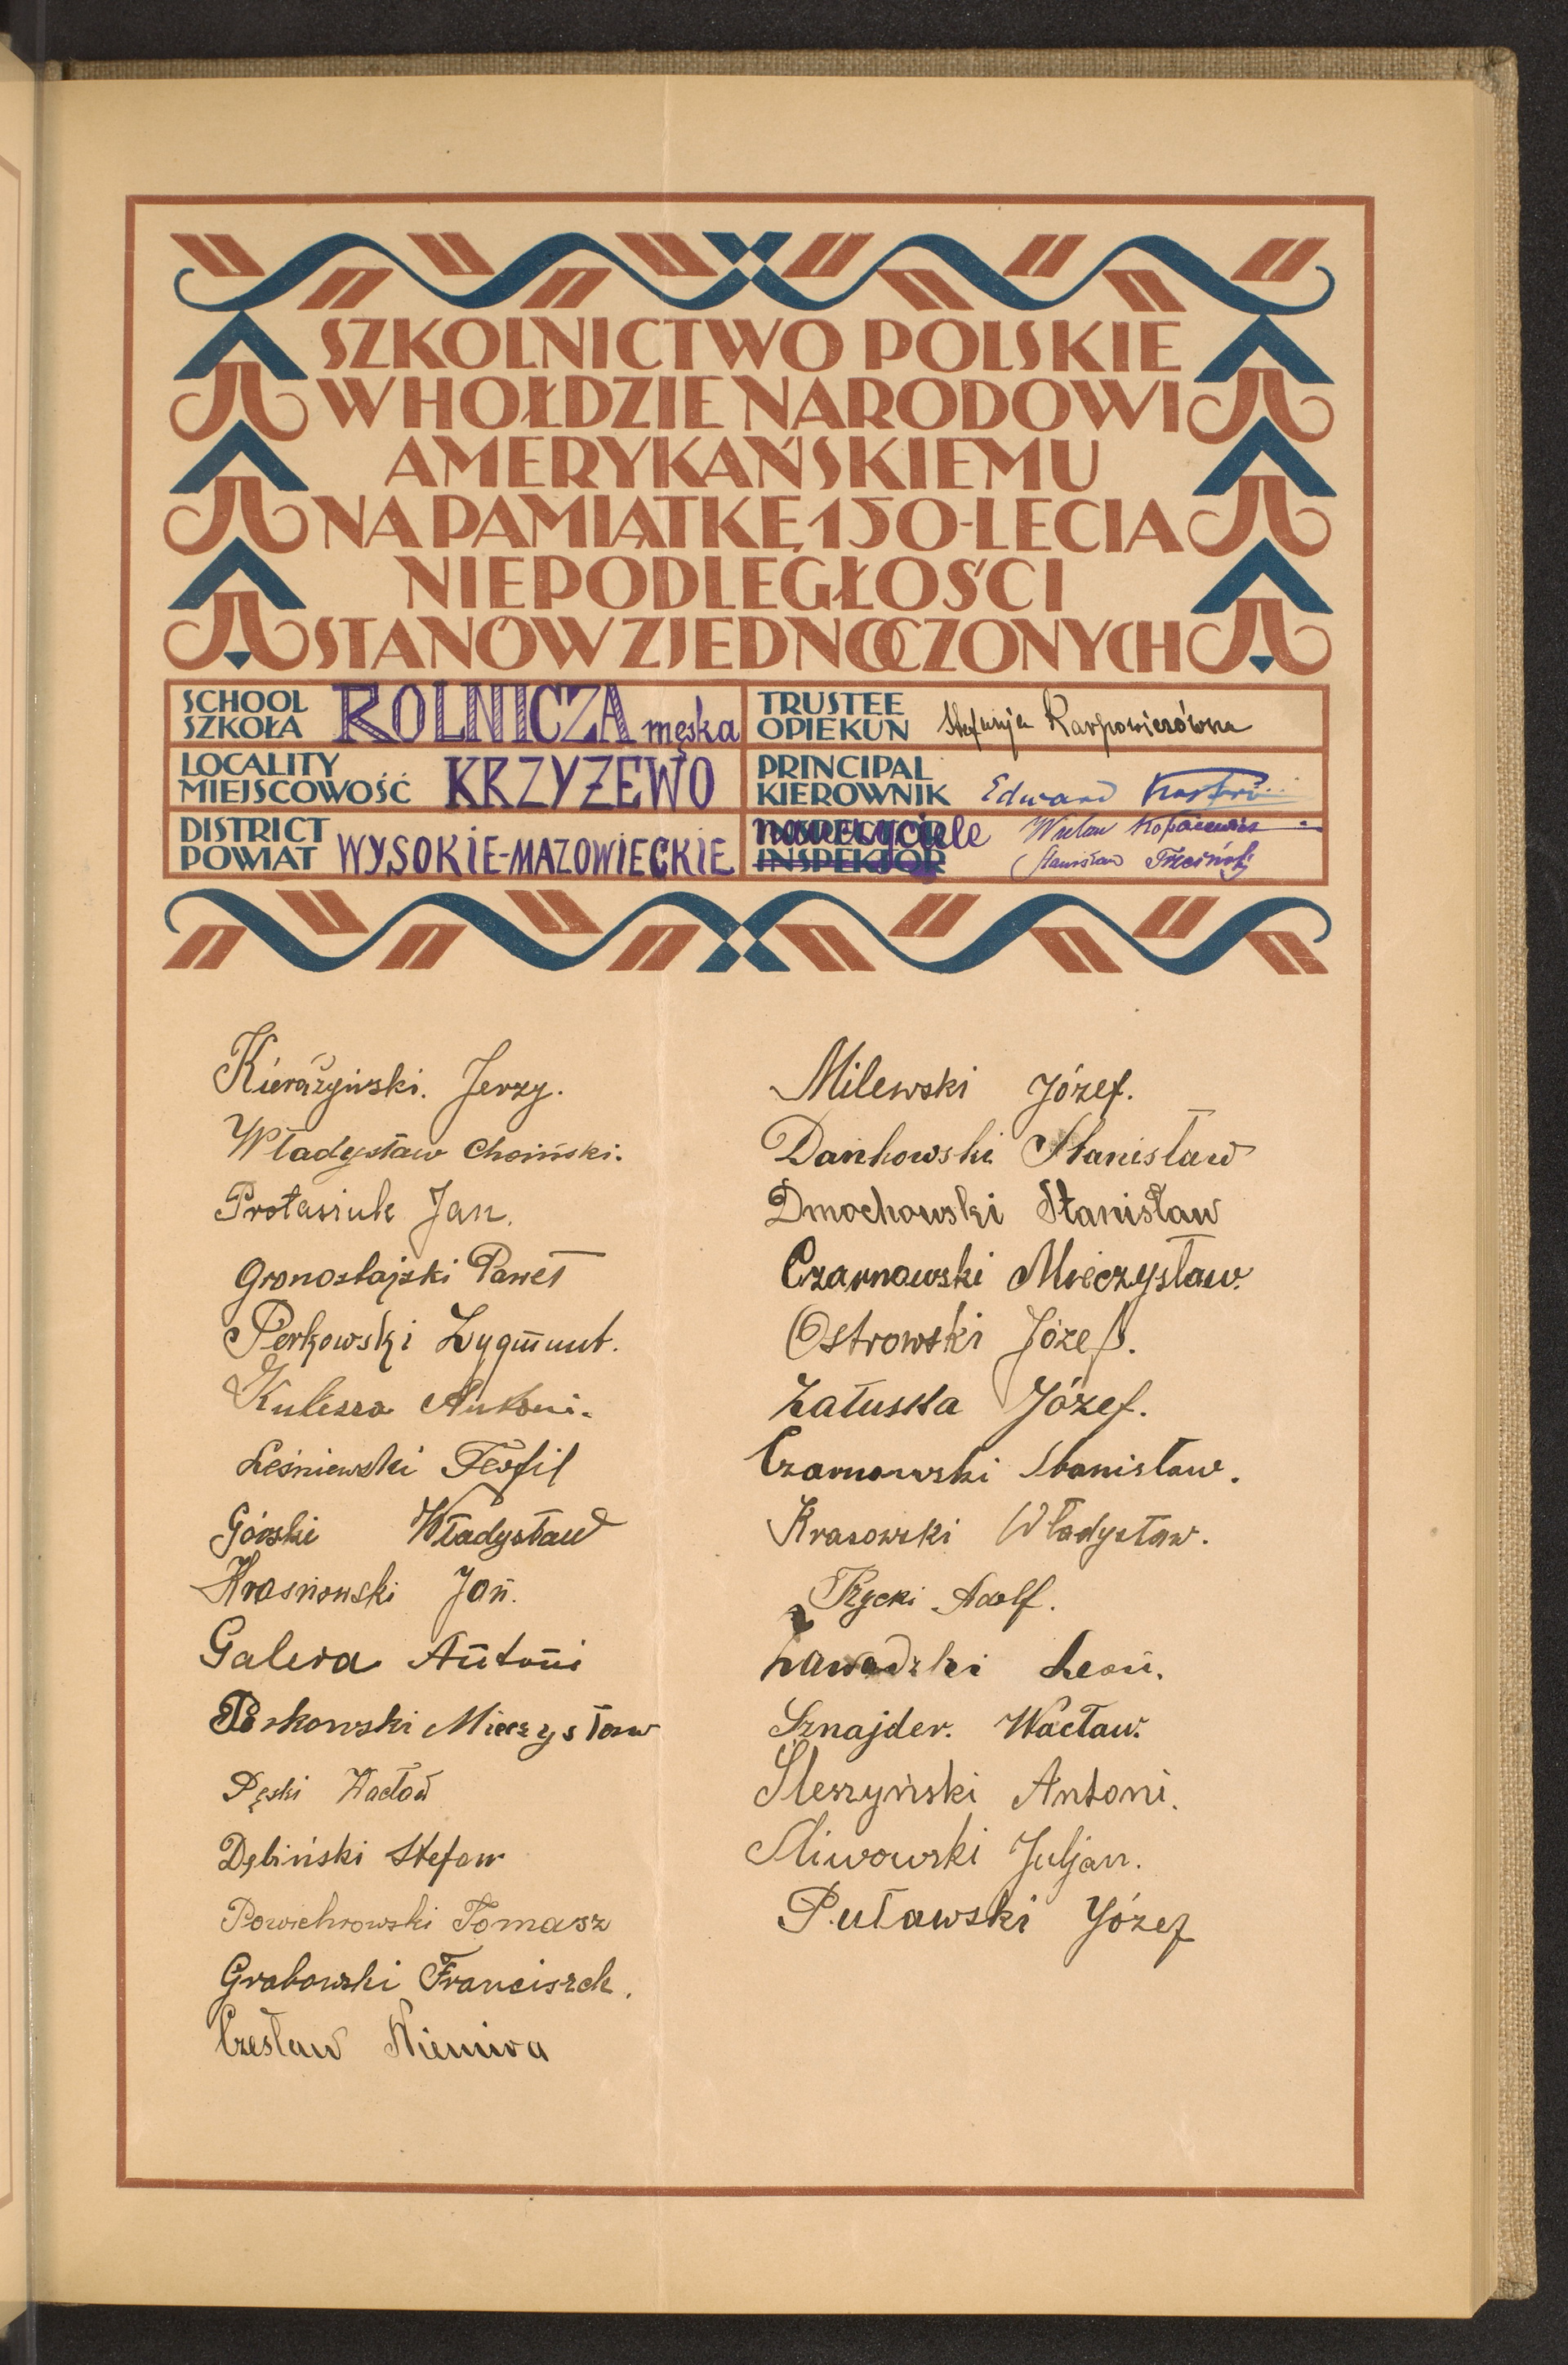 SZKOLNICTWO POLSKIE
W HOŁDZIE NARODOWI
AMERYKAŃSKIEMU
NA PAMIĄTKĘ 150-LECIA
NIEPODLEGŁOŚCI
STANÓW ZJEDNOCZONYCH
SCHOOL
SZKOŁA ROLNICZA męska
TRUSTEE
OPIEKUN Stefanja Karpowiczówna
LOCALITY
MIEJSCOWOŚĆ KRZYŻEWO
PRINCIPAL
KIEROWNIK Edward
DISTRICT
POWIAT WYSOKIE-MAZOWIECKIE
nauczyciele Wacław Kopaczewicz
INSPEKTOR Stanisław Trzciński
Kierażyński. Jerzy.
Władysław Choiński.
Protasiuk Jan.
Gronostajski Paweł
Perkowski Zygmunt.
Kulesza Antoni.
Leśniewski Teofil
Górski Władysław
Krasnowski Jan.
Galera Antoni
Perkowski Mieczysław
Pęski Wacław
Dębiński Stefan
Powichrowski Tomasz
Grabowski Franciszek.
Czesław Niemira
Milewski Józef.
Dańkowski Stanisław
Dmochowski Stanisław
Czarnowski Mieczysław.
Ostrowski Józef.
Załuska Józef.
Czarnowski Stanisław.
Krasowski Władysław.
Rzycki Adolf.
Zawadzki Leon.
Sznajder. Wacław.
Śleszyński Antoni.
Śliwowski Juljan.
Puławski Józef